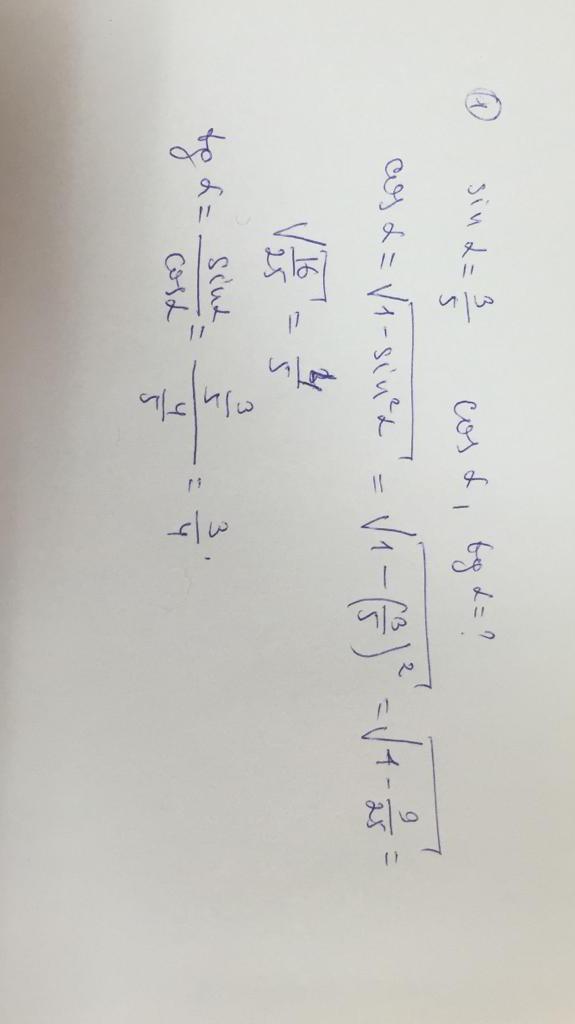 ① sin α = 3/5 cos α, tg α = ?
cos α = √(1 - sin²α) = √(1 - (3/5)²) = √(1 - 9/25) =
√(16/25) = 4/5
tg α = sin α/cos α = (3/5)/(4/5) = 3/4.